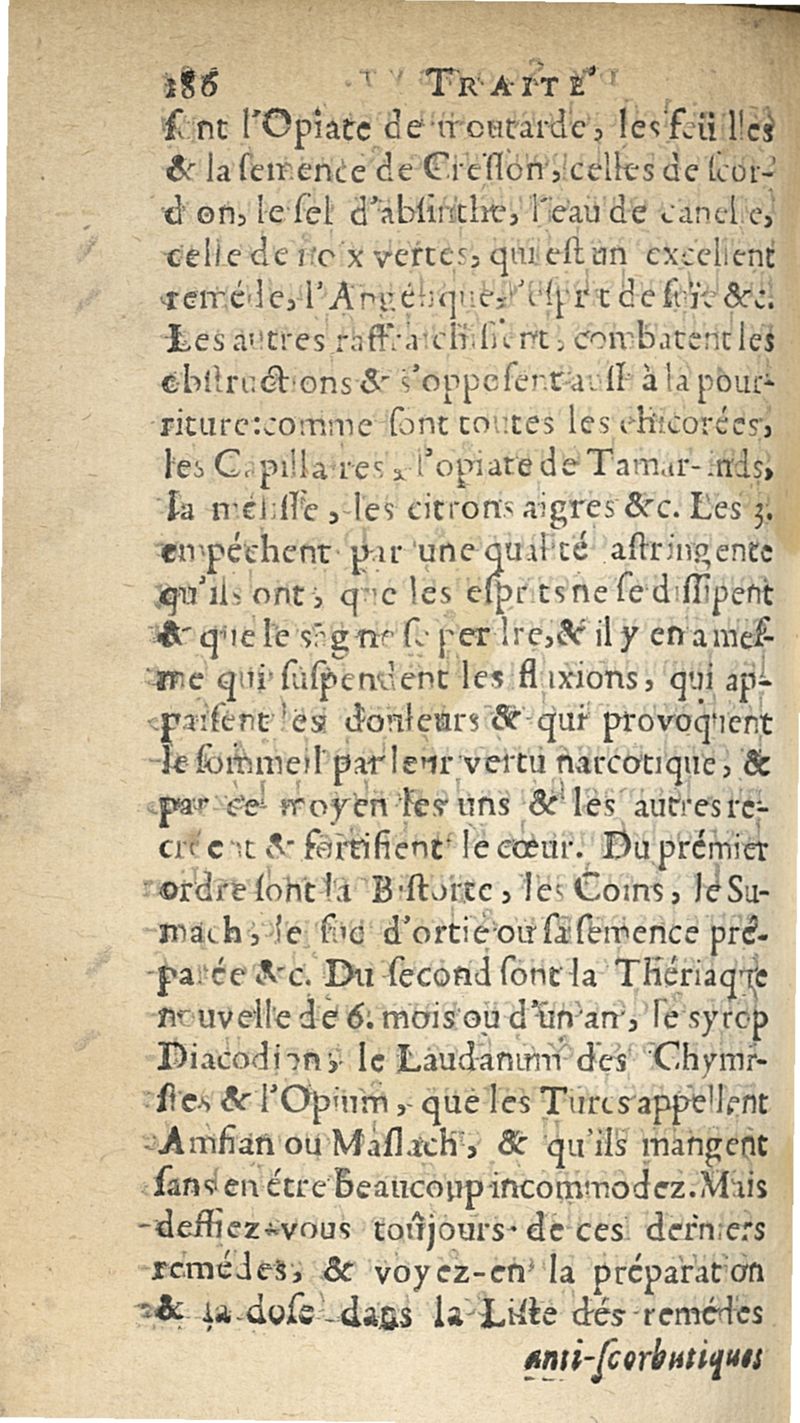 186 TRAITÉ
sont l'Opiate de moutarde, les feüilles
& la semence de Cresson, celles de scor-
dion, le sel d'absinthe, l'eau de canelle,
celle de noix vertes, qui est un excellent
reméde, l'Angélique, l'esprit de suïe &c.
Les autres raffraichissent, combatent les
obstructions & s'opposent aussi à la pour-
riture: comme sont toutes les chicorées,
les Capillaires, l'opiate de Tamar-inds,
la mélisse, les citrons aigres &c. Les 3.
empéchent par une qualité astringente
qu'ils ont, que les esprits ne se dissipent
& que le sang ne se perde, & il y en a mes-
me qui suspendent les fluxions, qui ap-
paisent les douleurs & qui provoquent
le sommeil par leur vertu narcotique, &
par ce moyen les uns & les autres re-
créent & fortifient le cœur. Du prémier
ordre sont la Bistorte, les Coins, le Su-
mach, le suc d'ortie ou sa semence pré-
parée &c. Du second sont la Thériaque
nouvelle de 6. mois ou d'un an, le syrop
Diacodion, le Laudanum des Chymi-
stes & l'Opium, que les Turcs appellent
Amfian ou Maslach, & qu'ils mangent
sans en étre beaucoup incommodez. Mais
deffiez-vous toûjours de ces derniers
remédes, & voyez-en la préparation
& la dose dans la Liste des remédes
anti-scorbutiques